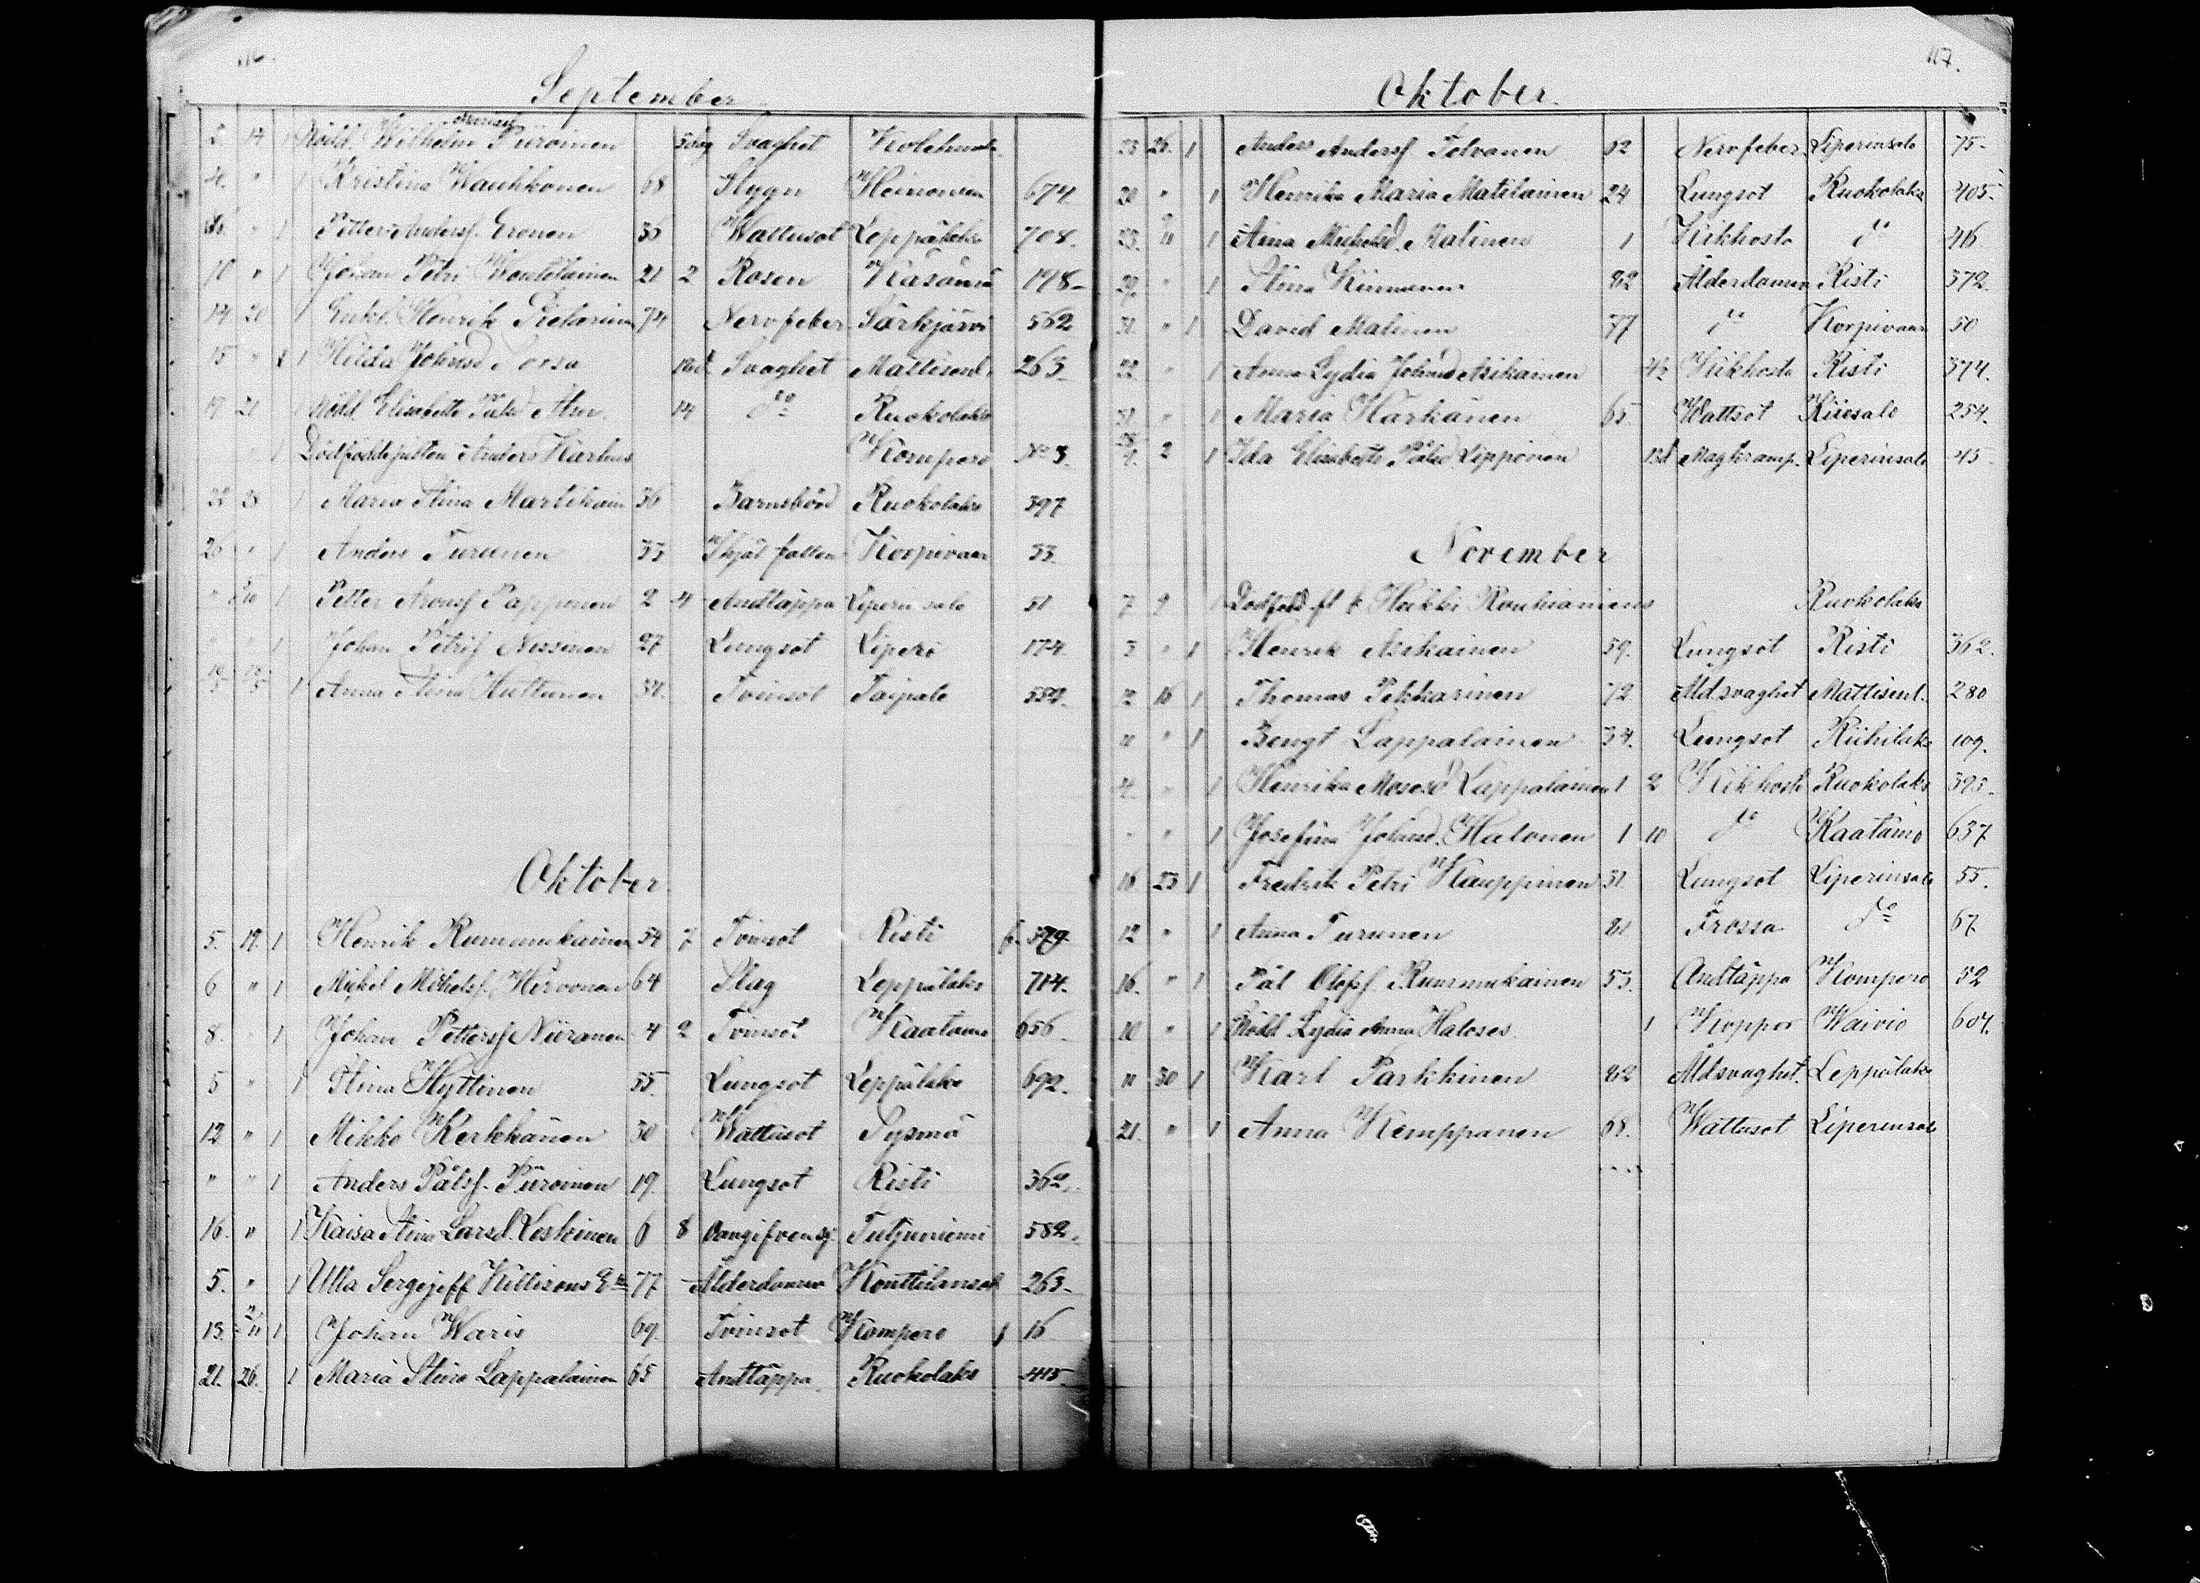 September
2. 14 1 Nödd. Wilhelm Piiroinen 5 dag Svaghet Kolehma
4. " 1 Kristina Wauhkonen 68 Stygn Heinonien 674
" 1 Petter Anderss. Eronen 36 Wattusot Leppälaks 708.
10 " 1 Johan Petri Woutilainen 21 2 Rosen Käsämä 198
14 20 1 Enkl. Henrik Pietarinen 74 Nervfeber Särkjärvi 562
15 " 1 Hilda Johnsd. Svaghet Mattisenl. 263
19 21 1 Nödd. Elisabeth Pålsd. 14 do Ruokolaks
" 1 Dödfödde Anders Kompero No 3.
22 1 Maria Stina Martikain 36 Barnsbörd Ruokolaks 397
26 " 1 Anders Turunen 33 Korpivaar 53.
" 1 Petter Aronsf Papponen 2 4 Andtäppa Liperinsalo 51
" " 1 Johan Petrif Nissinen 27 Lungsot Liperi 174
1 Anna Stina Huttunen 34. Tvinsot Taipale 552.
Oktober
5. 19. 1 Henrik Rummukainen 54 7 Tvinsot Risti f. 379
6 " 1 Mickel Mickelsf. Hirvonen 64 Slag Leppälaks 714.
8. " 1 Johan Pettersf Niiranen 4 2 Tvinsot Kaatamo 656
5 " 1 Stina Hyttinen 55. Lungsot Leppälaks 692.
12 " 1 Mikko Kerkkänen 30 Wattusot Sysmä
" " 1 Anders Pålsf. Piiroinen 19. Lungsot Risti 362.
16. " 1 Kaisa Stina Larsd. Leskinen 6 8 Oangifven sj. Tutjuniemi 582.
5. " 1 Ulla Sergejeff Kittisons Eka 77 Ålderdomsv Konttilansal 263.
13. 2/11 1 Johan Waris 69. Tvinsot Kompero f 16
21. 26. 1 Maria Stina Lappalainen 65 Andtäppa Ruokolaks 415.
117.
Oktober.
23 26. 1 Anders Andersf Tolvanen 62 Nervfeber Liperinsalo 75.
20 " 1 Henrika Maria Matilainen 24 Lungsot Ruokolaks 405.
23. 2/11 1 Aina Mickelsd. Malinen 1 Kikhosta do 416
29. " 1 Stina Kinnunen 82 Ålderdomen Risti 372.
31 " 1 David Malinen 77 do Korpivaar 50
22. " 1 Anna Lydia Johansd Asikainen 4½ Kikhosta Risti 374.
31. " 1 Maria Härkänen 65. Wattsot Kiiesalo 254.
2 1 Ida Elisabeth Pålsd Lipponen 13d Magkramp. Liperinsalo 45
November
7 9 1 Dödföd. fl. f. Heikki Rouhiainens Ruokolaks
3 " 1 Henrik Asikainen 59. Lungsot Risti 362.
12 16 1 Thomas Pekkarinen 72 Åld.svaghet Mattisenl. 280
11 " 1 Bengt Lappalainen 34. Lungsot Riihilaks 109.
4. " 1 Henrika Mosesd Lappalainen 1 2 Kikhosta Ruokolaks 395.
" " 1 Josefina Johnsd. Halonen 1 10 do Kaatamo 637
16 23 1 Fredrik Petri Kauppinen 31. Lungsot Liperinsalo 55.
12 " 1 Anna Turunen 81 Frossa do 67.
16. " 1 Pål Olofsf. Rummukainen 53. Andtäppa Kompero 52
10 " 1 Nödd. Lydia Anna Haloses. 1 Koppor Waivio 604.
11 30 1 Karl Parkkinen 82 Åld.svaghet. Leppälaks
21. " 1 Anna Kemppanen 68. Wattusot Liperinsalo